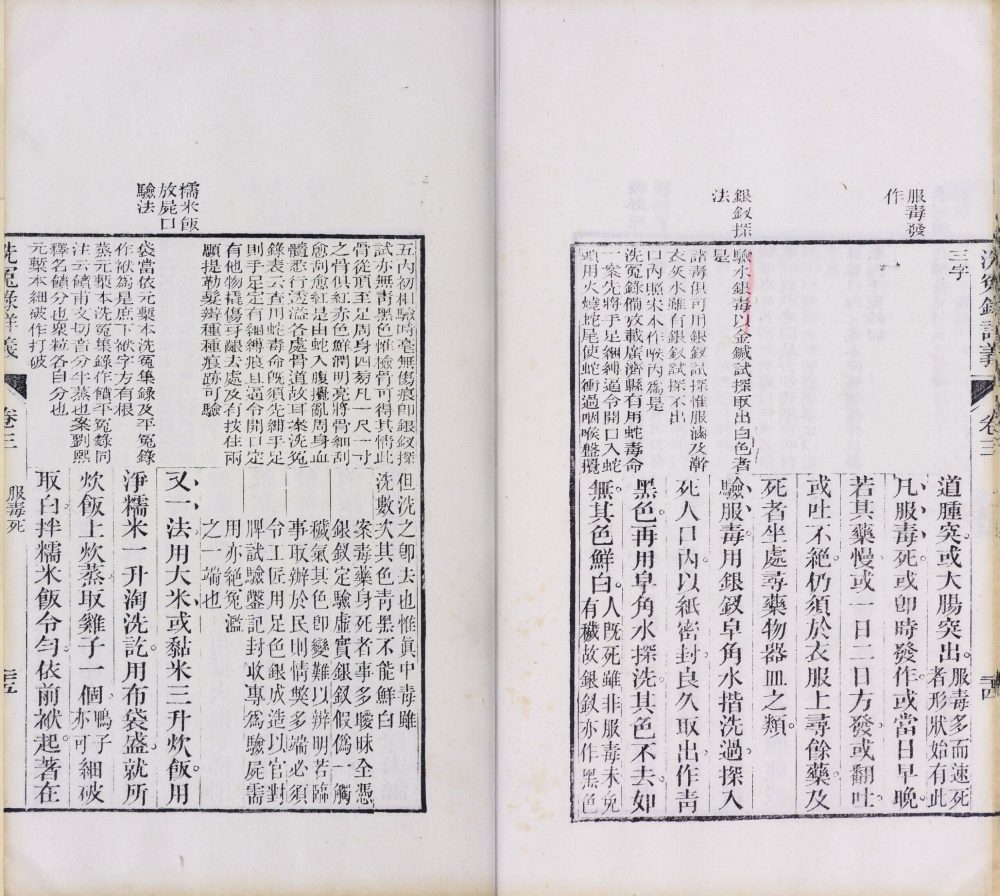 服毒發
作
銀釵探
法
三字
驗水銀毒以金鍼試探取出白色者
是
諸毒俱可用銀釵試探惟服滷及斷
衣灰水雖有銀釵試探不出
口內照宋本作喉內爲是
洗冤錄備攷載廣濟縣有用蛇毒命
一案先將手足綑縛逼令開口入蛇
頭用火燒蛇尾使蛇衝過咽喉盤攪
道腫突或大腸突出服毒多而速死
者形狀始有此
凡服毒死或卽時發作或當日早晚
若其藥慢或一日二日方發或翻吐
或吐不絶仍須於衣服上尋餘藥及
死者坐處尋藥物器皿之類
驗服毒用銀釵皁角水揩洗過探入
死人口內以紙密封良久取出作青
黑色再用皁角水探洗其色不去如
無其色鮮白人旣死雖非服毒未免
有穢故銀釵亦作黑色
糯米飯
放屍口
驗法
五內初相驗時毫無傷痕卽銀釵探
試亦無青黑色惟檢骨可得其情此
骨從頂至足周身四肢凡一尺一寸
之骨俱紅赤色鮮潤明亮將骨細刮
愈刮愈紅是由蛇入腹攪亂周身血
髓悉行透溢各處骨道故耳案洗冤
錄表云查用蛇毒命旣須先縛手足
則手足定有綑縛痕且逼令開口定
有他物撬傷牙齦去處及有按住兩
顧提勒髮辮種種痕跡可驗
袋當依元槧本洗冤集錄及平冤錄
作袱爲是底下袱字方有根
蒸元槧本洗冤集錄作饙平冤錄同
注云饙甫文切音分半蒸也案劉熙
釋名饙分也衆粒各自分也
元槧本細破作打破
但洗之卽去也惟眞中毒雖
洗數次其色青黑不能鮮白
案毒藥身死者事多曖昧全憑
銀釵定驗虛實銀釵假僞一觸
穢氣其色卽變難以辨明若臨
事取辦於民則情獘多端必須
令工匠用足色銀成造以官對
牌試驗鏨記封收專爲驗屍需
用亦絶冤濫
之一端也
又一法用大米或黏米三升炊飯用
淨糯米一升淘洗訖用布袋盛就所
炊飯上炊蒸取雞子一個鴨子
亦可細破
取白拌糯米飯令勻依前袱起著在
洗冤錄詳義
卷三
服毒死
三五